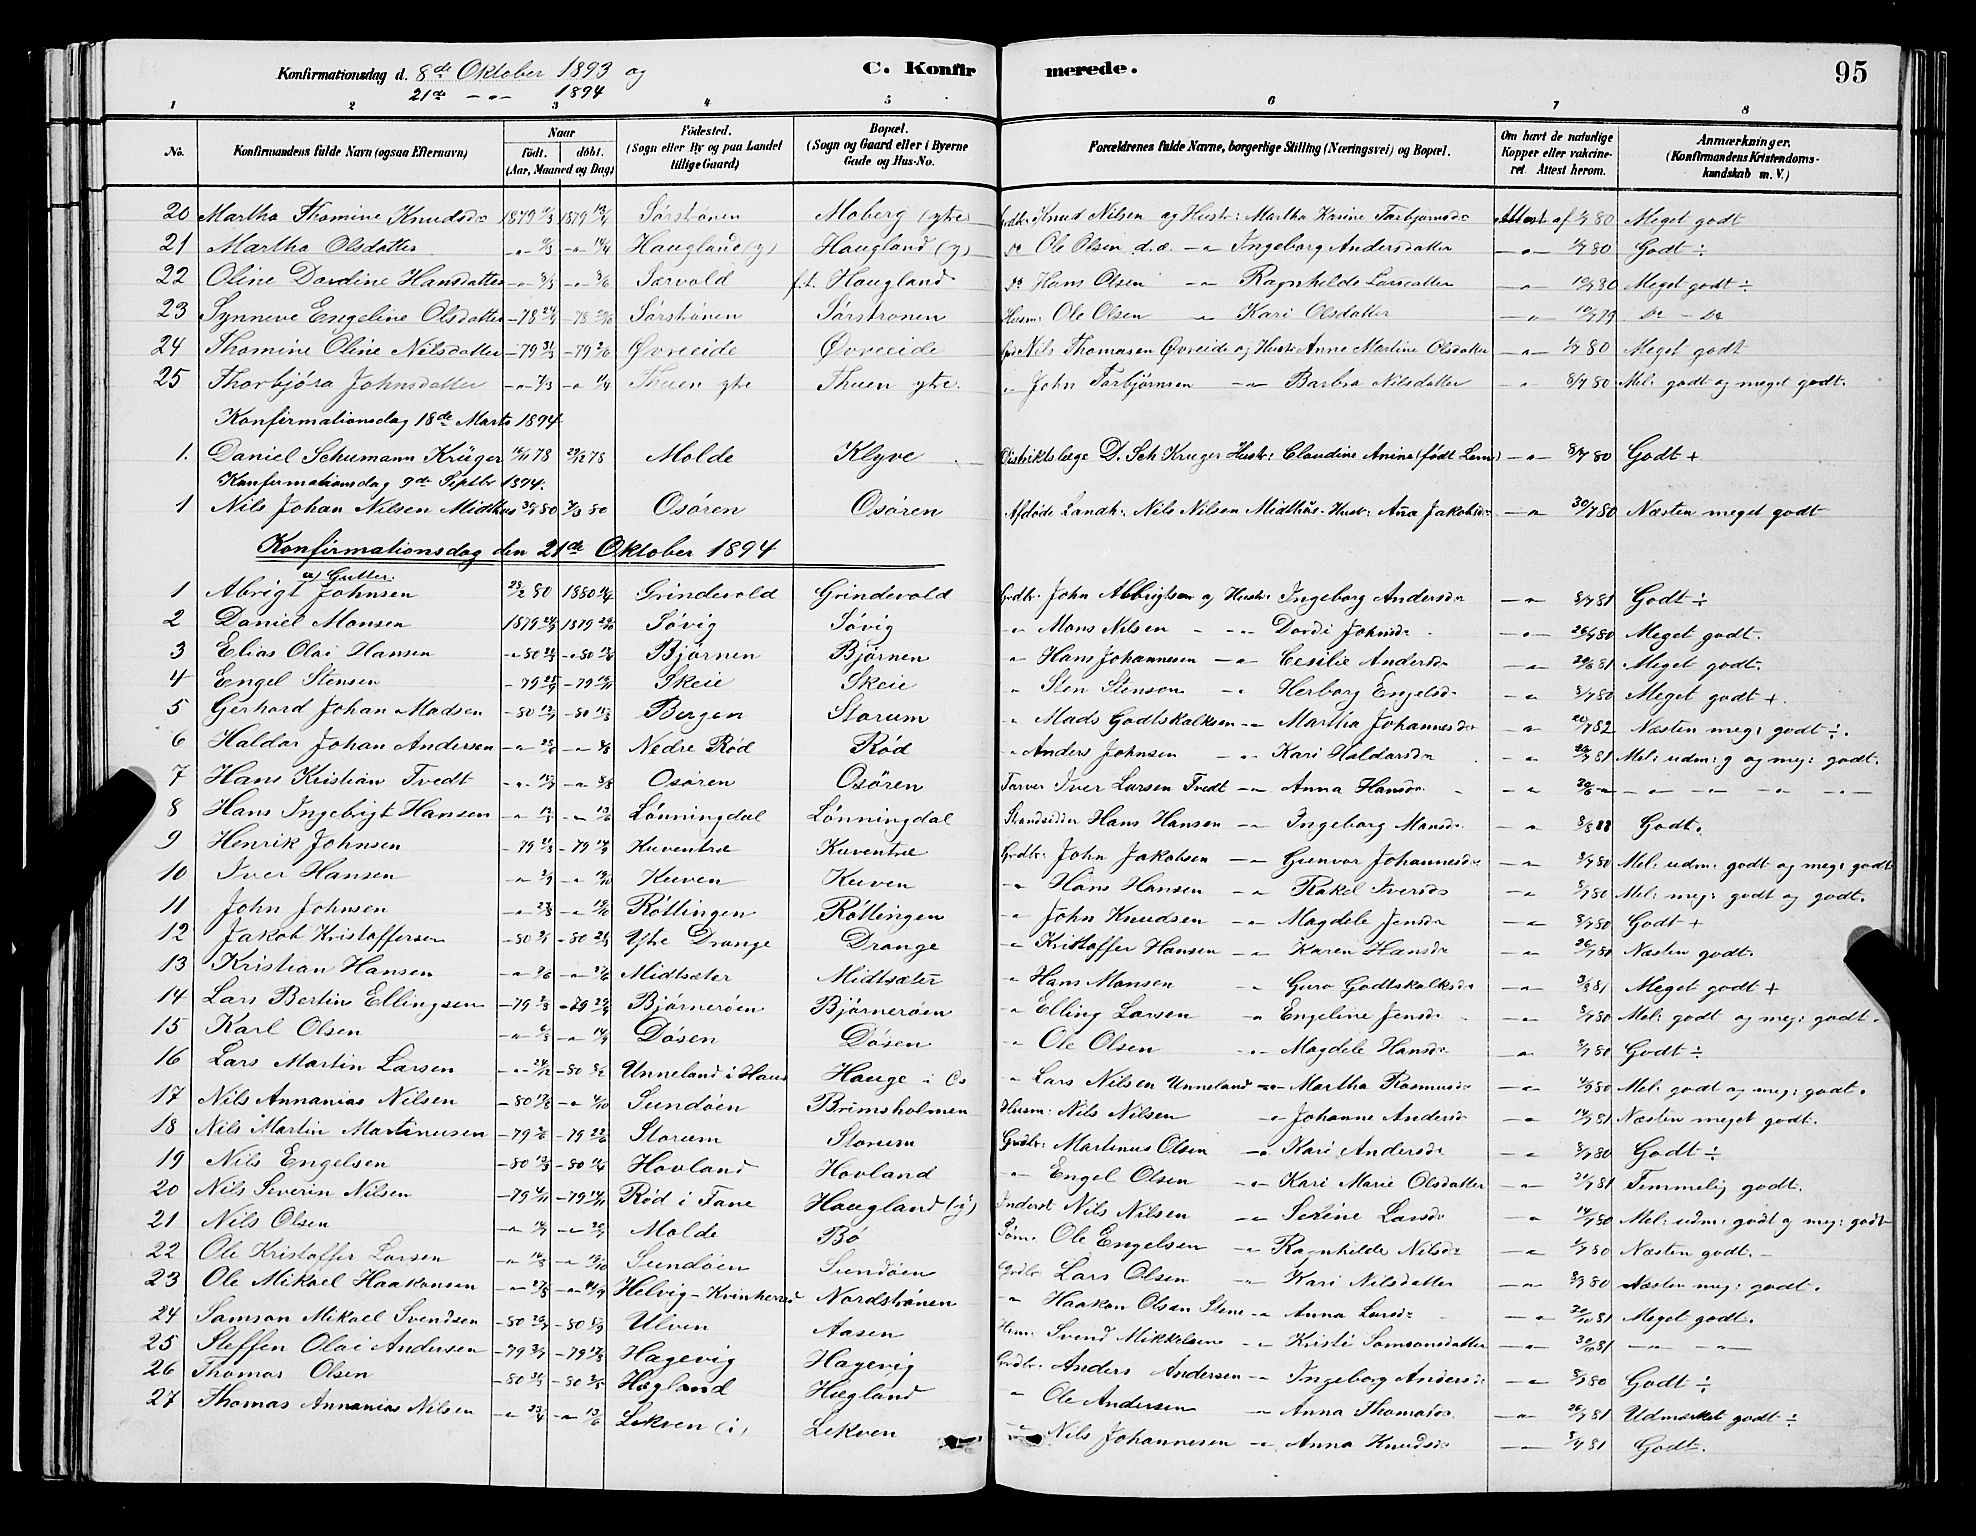 Konfirmationsdag d. 8de Oktober 1893 og C. Konfirmerede. 95
21de -"- 1894
1 2 3 4 5 6 7 8
No. Konfirmandens fulde Navn (ogsaa Efternavn) Naar født. døbt. (Aar, Maaned og Dag) Fødested. (Sogn eller By og paa Landet tillige Gaard) Bopæl. (Sogn og Gaard eller i Byerne Gade og Hus-No. Forældrenes fulde Navne, borgerlige Stilling (Næringsvei) og Bopæl. Om havt de naturlige Kopper eller vaccineret. Attest herom. Anmærkninger. (Konfirmandens Kristendomskundskab m. V.)
20 Martha Thomine Knudsdr 1879 1879 Sørstrønen Moberg (ytre) Knud Nilsen og Hustr: Martha Karine Torbjørnsdr Attest af 80 Meget godt
21 Martha Olsdatter -"- -"- Haugland (y) Haugland (y) Do Ole Olsen d.æ. -"- Ingeborg Andersdatter -"- 80 Godt ÷
22 Oline Dordine Hansdatter -"- -"- Særvold f.t. Haugland Do Hans Olsen -"- Ragnhilde Larsdatter -"- 80 Meget godt ÷
23 Synneve Engeline Olsdatter -78 -78 Sørstrønen Sørstrønen Husm: Ole Olsen " Kari Olsdatter -"- 79 Do - Do
24 Thomine Oline Nilsdatter -79 -79 Øvreeide Øvreeide Nils Thomasen Øvreide og Hustr: Anne Martine Olsdatter -"- 80 Meget godt
25 Thorbjøra Johnsdatter -"- -"- Thuen ytre Thuen ytre. " John Torbjørnsen -"- Barbra Nilsdatter " 8/7 80 Mel: godt og meget godt.
Konfirmationsdag 18de Marts 1894
1. Daniel Schumann Krüger 78 78 Molde Klyve Distriktslæge D. Sch Krüger Hustr: Claudine Anine (født Lem) -"- 8/7 80 Godt +
Konfirmationsdag 9de Septbr 1894.
1 Nils Johan Nilsen Midthus 80 80 Osøren Osøren Afdøde Landh: Nils Nilsen Midthus - Hustr: Anna Jakobsdr -"- 80 Næsten meget godt
Konfirmationsdag den 21de Oktober 1894
a) Gutter.
1 Abrigt Johnsen 80 1880 Grindevold Grindevold Grdbr. John Abbrigtsen og Hustr: Ingeborg Andersdr -"- 8/7 81 Godt ÷
2 Daniel Monsen 1879 1879 Søvig Søvig " Mons Nilsen -"- Dordi Johnsdr -"- 80 Meget godt.
3 Elias Olai Hansen -"- 80 -"- 80 Bjørnen Bjørnen " Hans Johannesen -"- Cesilie Andersdr -"- 81 Meget godt.
4 Engel Stensen -79 -79 Skeie Skeie " Sten Stenson -"- Herborg Engelsdr -"- 80 Meget godt +.
5 Gerhard Johan Madsen -80 -80 Bergen Storum " Mads Godtskalksen -"- Martha Johannesdr -"- 82 Næsten meg: godt ÷.
6 Haldor Johan Andersen -"- -"- Nedre Rød Rød " Anders Johnsen -"- Kari Haldorsdr -"- 81 Mel: udm: g og meg: godt.
7 Hans Kristian Tvedt -"- -"- Osøren Osøren Farver Iver Larsen Tvedt -"- Anna Hansdr -"- -"- -"- -"-
8 Hans Ingebrigt Hansen -"- -"- Lønningdal Lønningdal Strandsidder Hans Hansen -"- Ingeborg Monsdr -"- Godt.
9 Henrik Johnsen -79 -79 Kuventræ Kuventræ Grdbr: John Jakobsen -"- Gunvor Johannesdr -"- 80 Mel: udm: godt og meg: godt
10 Iver Hansen -"- -"- Kuven Kuven -"- Hans Hansen -"- Rakel Iversdr -"- 80 Mel: meg: godt og godt.
11 John Johnsen -"- -"- Røttingen Røttingen " John Knudsen -"- Magdele Jensdr -"- 80 Godt +
12 Jakob Kristoffersen -80 -80 Ytre Drange Drange " Kristoffer Hansen -"- Karen Hansdr -"- 80 Næsten godt.
13 Kristian Hansen -"- -"- Midtsæter Midtsæter " Hans Monsen -"- Guro Godtskalksdr -"- 81 Meget godt +
14 Lars Bertin Ellingsen -79 -79 Bjørnerøen Bjørnerøen " Elling Larsen " Engeline Jensdr -"- 80 Mel: godt og meg: godt.
15 Karl Olsen -"- -"- Døsen Døsen " Ole Olsen -"- Magdele Hansdr " 80 Godt ÷
16 Lars Martin Larsen -"- -80 Unneland i Haus Hauge i Os " Lars Nilsen Unneland -"- Martha Rasmusdr -"- 80 Mel: godt og meg: godt.
17 Nils Annanias Nilsen -80 -"- Sundøen Brimsholmen Husm: Nils Nilsen -"- Johanne Andersdr -"- 81 Næsten meget godt.
18 Nils Martin Martinusen -79 -79 Storum Storum Grdbr: Martinus Olsen -"- Kari Andersdr -"- 80 Godt ÷
19 Nils Engelsen -80 -80 Hovland Hovland -"- Engel Olsen -"- Kari Marie Olsdatter -"- 81 Temmelig godt.
20 Nils Severin Nilsen -79 -79 Rød i Fane Haugland (y) Inderst Nils Nilsen -"- Serine Larsdr -"- 80 Mel: udm: godt og meg: godt
21 Nils Olsen -"- -"- Molde Bø Ole Engelsen -"- Ragnhilde Nilsdr -"- 80 Næsten godt. -
22 Ole Kristoffer Larsen -"- -"- Sundøen Sundøen Grdbr: Lars Olsen -"- Kari Nilsdatter -"- 80 Næsten meg: godt.
23 Ole Mikael Haakonsen -"- -"- Helvig - Kvinherred Nordstrønen " Haakon Olsen Stene -"- Anna Larsdr -"- 81 Meget godt.
24 Samson Mikael Svendsen -80 -80 Ulven Aasen Husm: Svend Mikkelsen -"- Kristi Samsonsdatter -"- 81 -"- -"-
25 Steffen Olai Andersen -79 -79 Hagevig Hagevig Grdbr: Anders Andersen -"- Ingeborg Andersdr -"- 80 Godt ÷
26 Thomas Olsen -80 -80 Hægland Hægland " Ole Andersen -"- Anna Thomasdr. -"- 81 Udmærket godt ÷
27 Thomas Annanias Nilsen -"- -"- Lekven (i) Lekven " Nils Johannesen -"- Anna Knudsdr -"- 81 Godt.